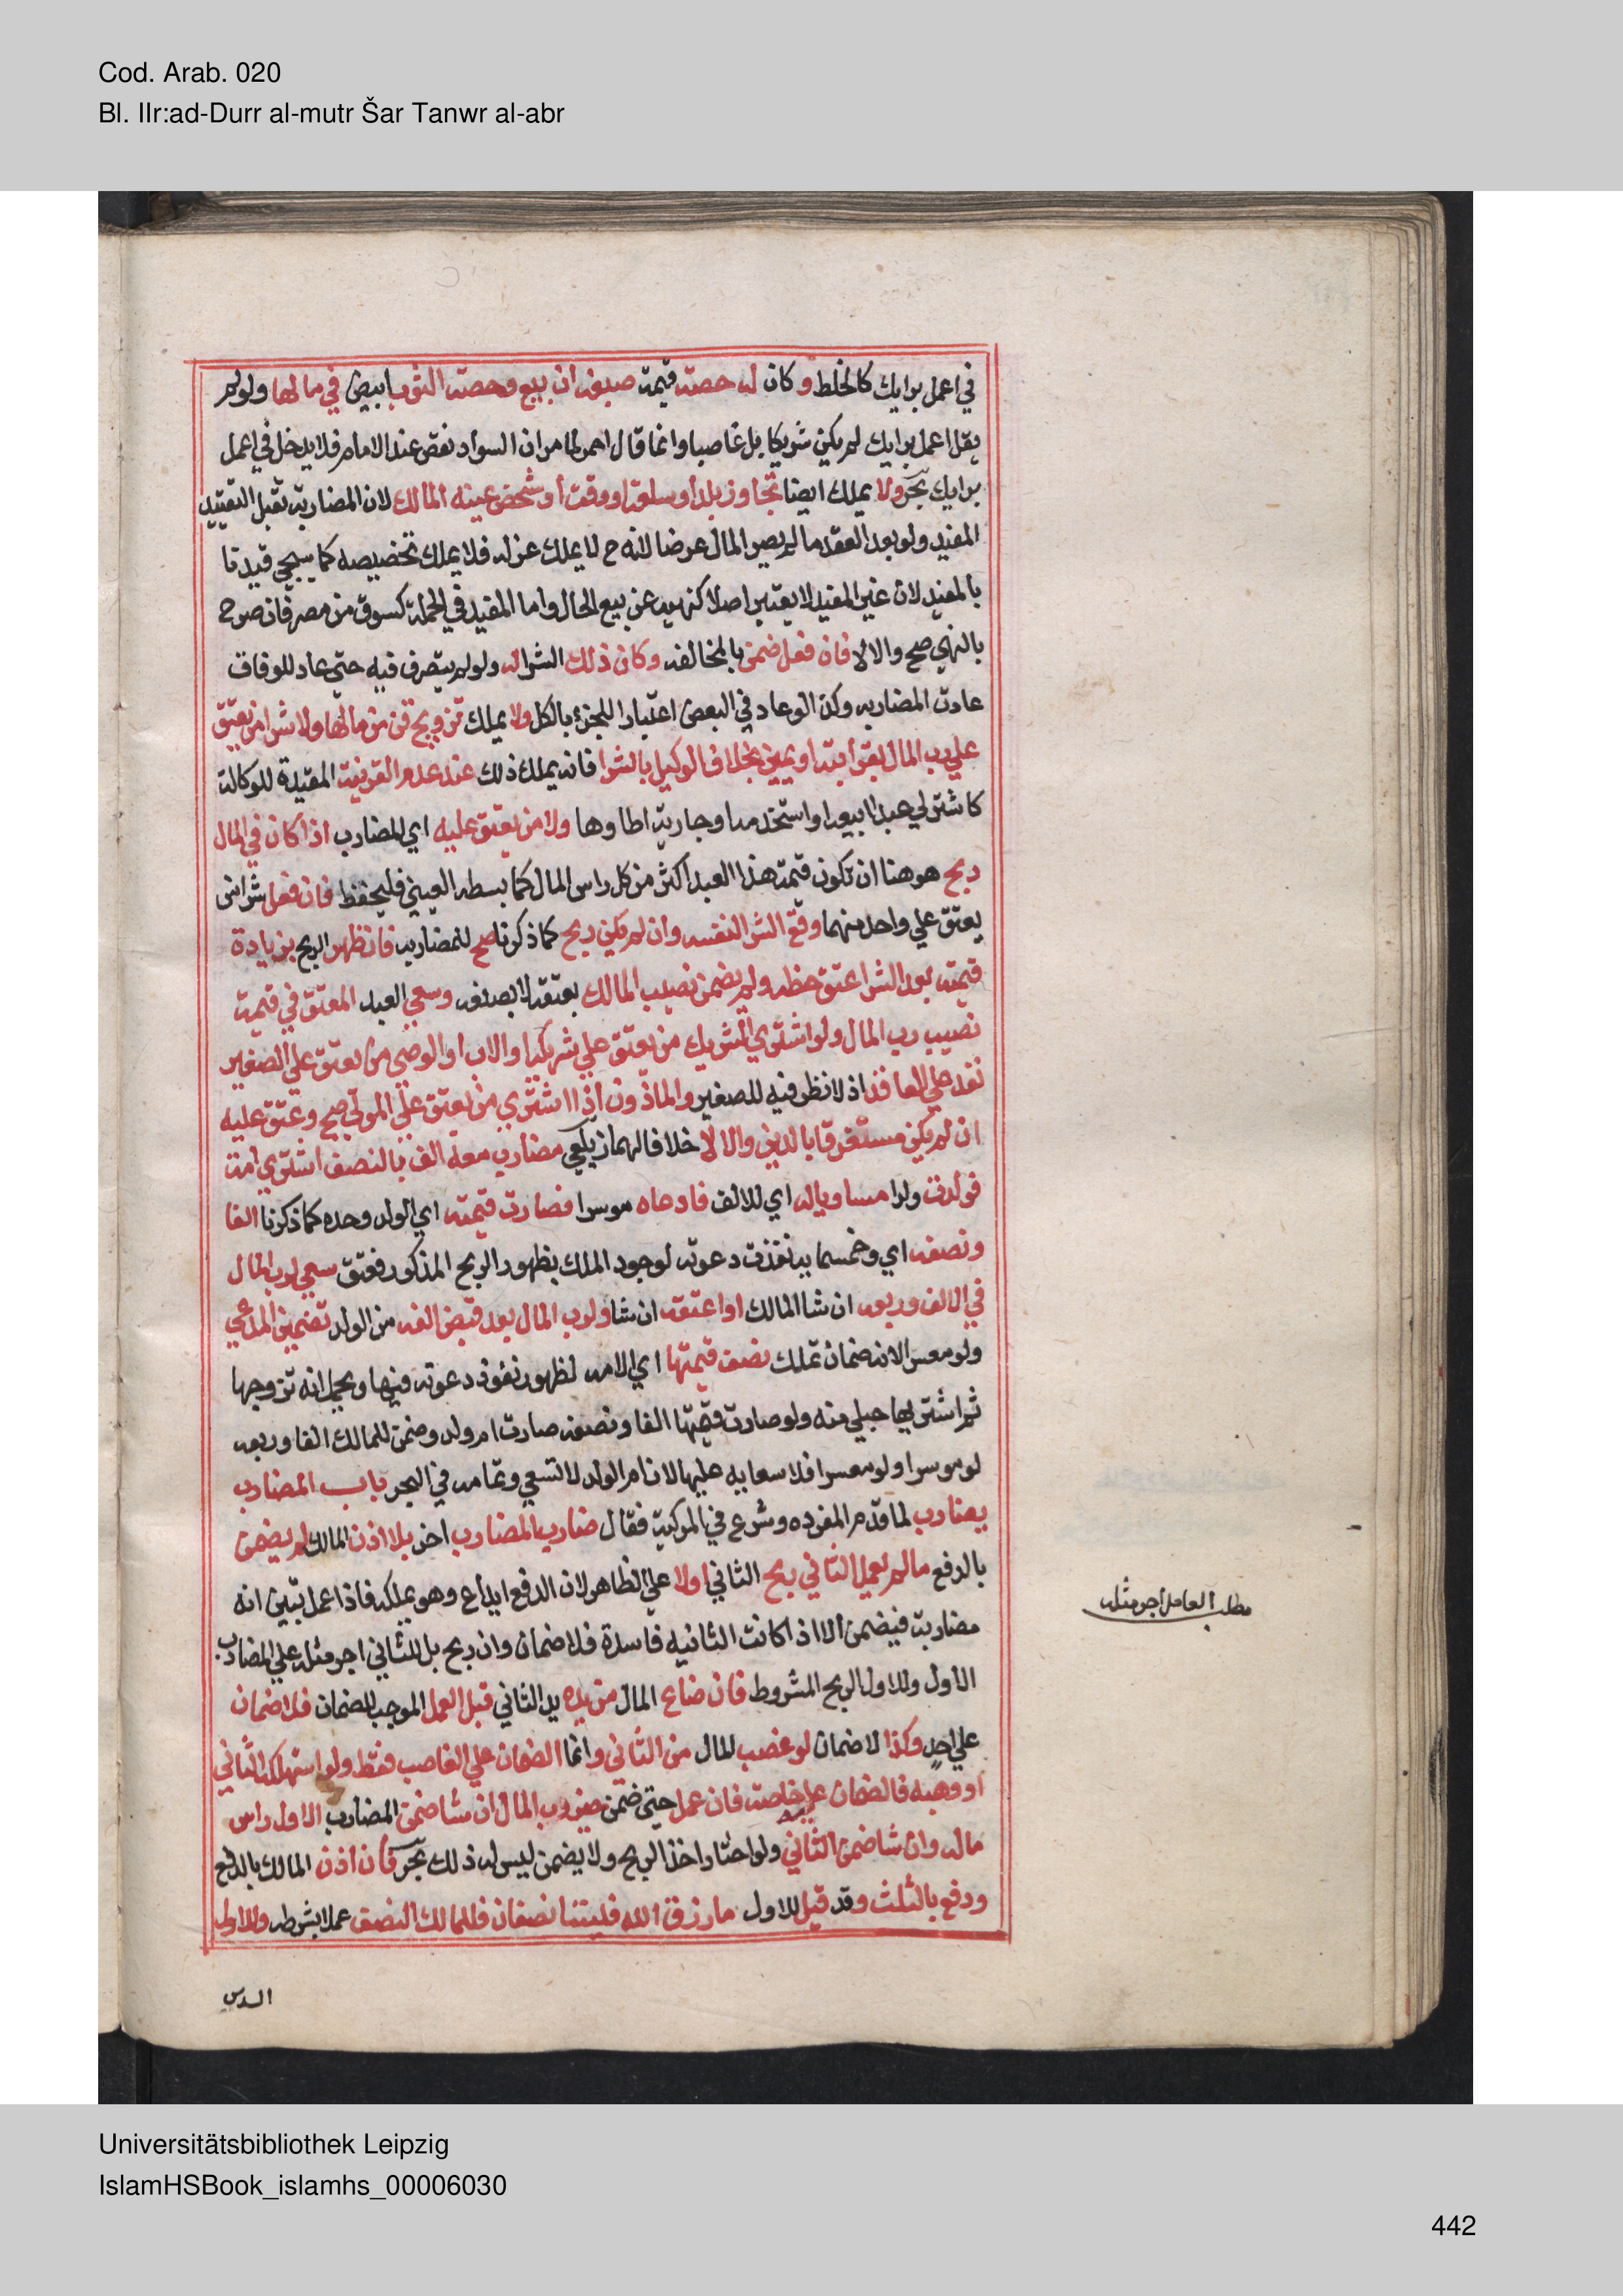 Cod. Arab. 020
Bl. IIr:ad-Durr al-mutr Šar Tanwr al-abr
في اعمل برايك كالخلط وكان له حصته قيمة صبغه ان بيع وحصة الثوب ابيض في مالها ولو لم
يقل اعمل برايك لم يكن شريكا بل غاصبا وانما قال احمر لما مر ان السواد نقص عند الامام فلا يدخل في اعمل
برايك بحر ولا يملك ايضا تجاوز بلد أو سلعة او وقت أو شخص عينه المالك لان المضاربة تقبل التقييد
المفيد ولو بعد العقد ما لم يصر المال عرضا لانه ح لا يملك عزله فلا يملك تخصيصه كما سيجي قيدنا
بالمفيد لان غير المفيد لا يعتبر اصلا كنهيه عن بيع الحال واما المفيد في الجملة كسوق من مصر فان صرح
بالنهي صح والا لا فان فعل ضمن بالمخالفه وكان ذلك الشرا له ولو لم يتصرف فيه حتى عاد للوفاق
عادت المضاربه وكذا لو عاد في البعض اعتبارا للجزء بالكل ولا يملك تزويج قن من مالها ولا شرا من يعتق
علي رب المال بقرابة او يمين بخلاف الوكيل بالشرا فانه يملك ذلك عند عدم القرينة المقيدة للوكالة
كاشتر لي عبدا ابيعه او استخدمه او جارية اطاوها ولا من يعتق عليه اي المضارب اذا كان في المال
ربح هو هنا ان تكون قيمة هذا العبد اكثر من كل راس المال كما بسطه العيني فليحفظ فان فعل شرا من
يعتق علي واحد منهما وقع الشرا لنفسه وان لم يكن ربح كما ذكرنا صح للمضاربه فان ظهر الربح بزيادة
قيمته بعد الشرا عتق حظه ولم يضمن نصيب المالك بعتقه لا بصنعه وسعي العبد المعتق في قيمة
نصيب رب المال ولو اشتري الشريك من يعتق علي شريكه او الاب او الوصي من يعتق علي الصغير
نفذ علي العاقد اذ لا نظر فيه للصغير والماذون اذا اشتري من يعتق علي المولي صح وعتق عليه
ان لم يكن مستغرقا بالدين والا لا خلافا لهما زيلعي مضارب معه الف بالنصف اشتري امة
فولدت ولدا مساويا له اي للالف فادعاه موسرا فصارت قيمته اي الولد وحده كما ذكرنا الفا
ونصفه اي وخمسمايه نفذت دعوته لوجود الملك بظهور الربح المذكور فعتق سعي لرب المال
في الالف وربعه ان شا المالك او اعتقه ان شا ولرب المال بعد قبض الفه من الولد تضمين المدعي
ولو معسرا لانه ضمان تملك نصف قيمتها اي الامه لظهور نفوذ دعوته فيها ويحمل انه تزوجها
ثم اشتريها حبلي منه ولو صارت قيمتها الفا ونصفه صارت ام ولد وضمن للمالك الفا وربعه
لو موسرا ولو معسرا فلا سعايه عليها لان ام الولد لا تسعي وتمامه في البحر باب المضارب
يضارب لما قدم المفرده وشرع في المركبة فقال ضارب المضارب اخر بلا اذن المالك لم يضمن
بالدفع ما لم يعمل الثاني ربح الثاني اولا علي الظاهر لان الدفع ايداع وهو يملكه فاذا عمل تبين انه
مضاربة فيضمن الا اذا كانت الثانيه فاسدة فلا ضمان وان ربح بل للثاني اجر مثله علي المضارب
الأول وللاول الربح المشروط فان ضاع المال من يده يد الثاني قبل العمل الموجب للضمان فلا ضمان
علي احد وكذا لا ضمان لو غصب المال من الثاني وانما الضمان علي الغاصب فقط ولو استهلكه الثاني
او وهبه فالضمان عليه خاصة فان عمل حتى ضمن خير رب المال ان شا ضمن المضارب الاول راس
ماله وان شا ضمن الثاني ولو اختار اخذ الربح ولا يضمن ليس له ذلك بحر فان اذن المالك بالدفع
ودفع بالثلث وقد قيل للاول ما رزق الله فبيننا نصفان فللمالك النصف عملا بشرطه وللاول
السدس
مطلب العامل اجر مثله
Universitätsbibliothek Leipzig
IslamHSBook_islamhs_00006030
442